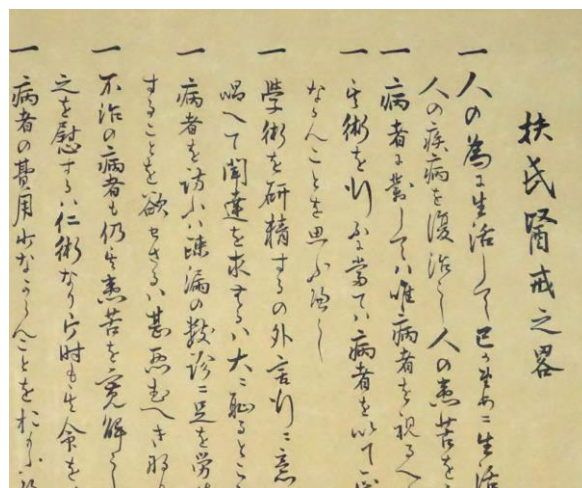 扶氏醫戒之畧
一 人の為に生活して己のために生活
人の疾病を復治し人の患苦を
一 病者に對しては唯病者を視るへ
一 其術を行ふに當ては病者を以て正
ならんことを思ふへし
一 學術を研精するの外言行に意
唱へて聞達を求むるは大に恥るところ
一 病者を訪ふは疎漏の數診に足を勞
することを欲せさるは甚悪むへき
一 不治の病者も仍其患苦を寛解し
之を慰するは仁術なり片時も其命を
一 病者の費用少なからんことをおもふへ